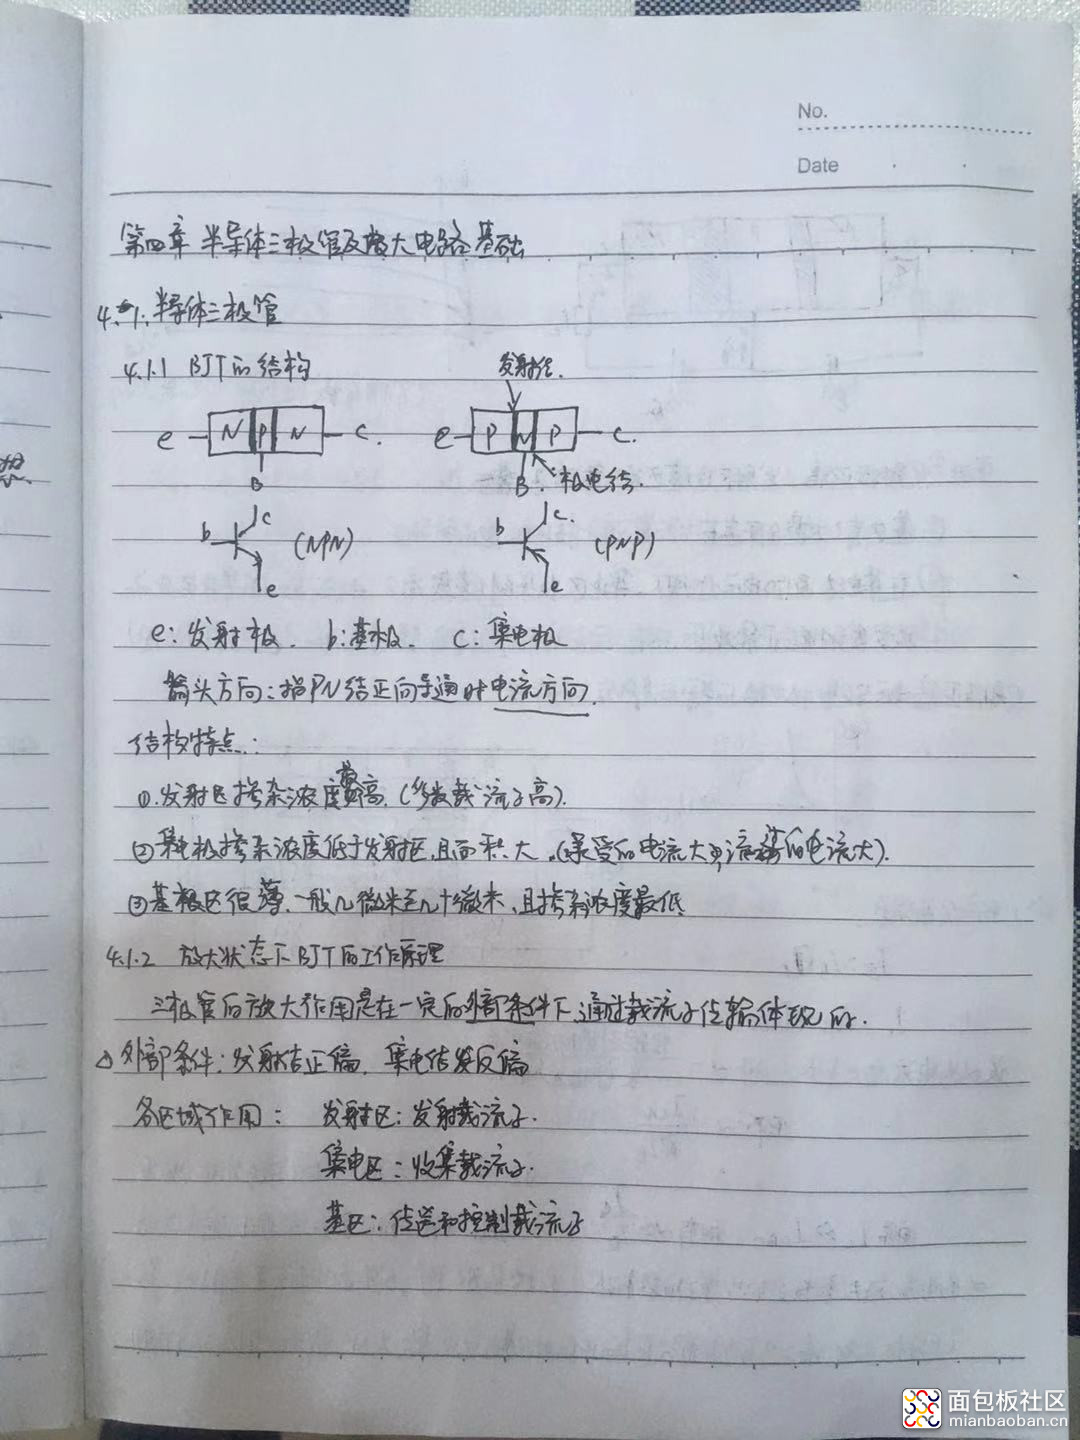 No.
Date
第四章 半导体三极管及放大电路基础
4.1. 半导体三极管
4.1.1 BJT的结构
发射结.
e N P N c. e P N P c.
B B. 极电结.
b c (NPN) b c. (PNP)
e e
e: 发射极. b:基极. c: 集电极
箭头方向: 指PN结正向导通时电流方向.
结构特点:
①.发射区掺杂浓度最高.(多数载流子高).
②集电极掺杂浓度低于发射区,且面积大.(承受的电流大,流的电流大).
③基极区很薄.一般几微米至几十微米,且掺杂浓度最低
4.1.2 放大状态下BJT的工作原理
三极管的放大作用是在一定的外部条件下,通过载流子传输体现的.
外部条件: 发射结正偏. 集电结反偏
各区域作用: 发射区: 发射载流子.
集电区: 收集载流子.
基区: 传送和控制载流子
面包板社区
mianbaoban.cn